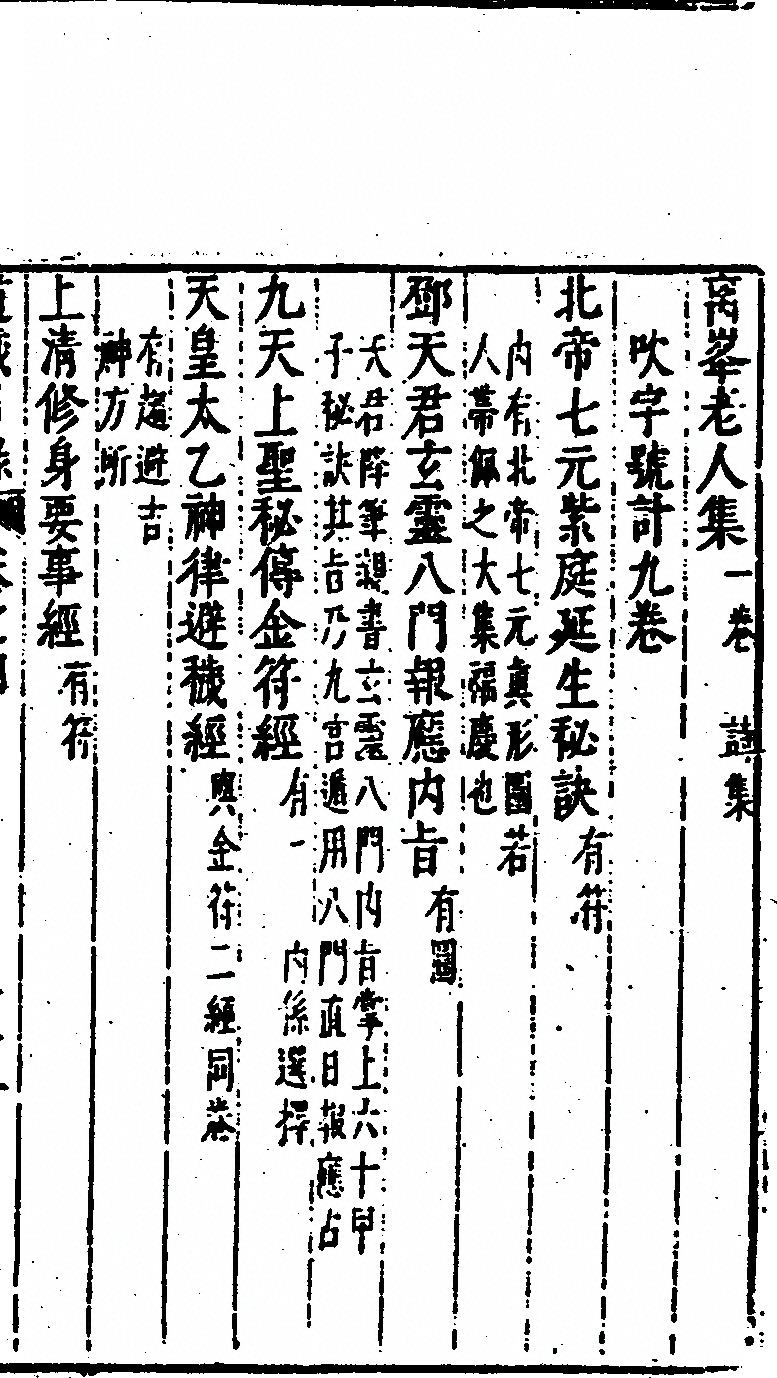 离峯老人集一卷 詩集
吹字號計九卷
北帝七元紫庭延生秘訣有符
內有北帝七元真形圖若
人帶佩之大集福慶也
鄧天君玄靈八門報應內旨有圖
天君降筆親書玄靈八門內旨掌上六十甲
子秘訣其旨乃九宮遁用八門直日報應占
九天上聖秘傳金符經有一 內係選擇
天皇太乙神律避穢經與金符二經同卷
有趨避吉
神方所
上清修身要事經有符